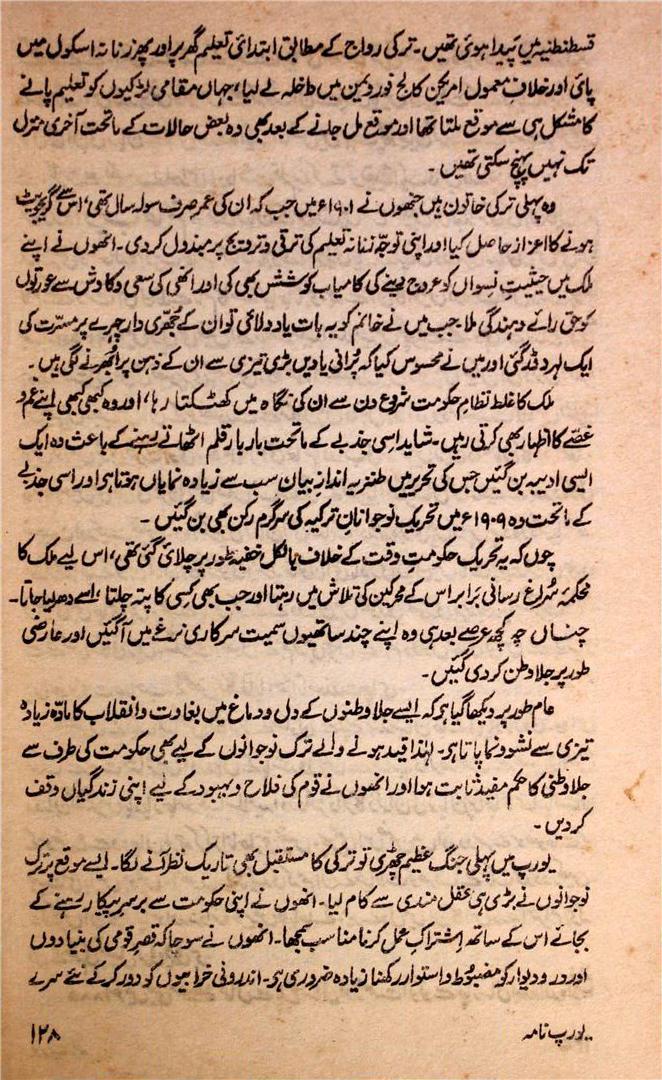 قسطنطنیہ میں پیدا ہوئی تھیں۔ ترکی رواج کے مطابق ابتدائی تعلیم گھر پر اور پھر زنانہ اسکول میں
پائی اور خلافِ معمول امریکن کالج فور ویمین میں داخلہ لے لیا، جہاں مقامی لڑکیوں کو تعلیم پانے
کا مشکل ہی سے موقع ملتا تھا اور موقع مل جانے کے بعد بھی وہ بعض حالات کے ماتحت آخری منزل
تک نہیں پہنچ سکتی تھیں۔
وہ پہلی ترکی خاتون ہیں جنھوں نے ۱۹۰۱ء میں جب کہ ان کی عمر صرف سولہ سال تھی، اس سے گریجویٹ
ہونے کا اعزاز حاصل کیا اور اپنی توجہ زنانہ تعلیم کی ترقی و ترویج پر مبذول کر دی۔ انھوں نے اپنے
ملک میں حیثیتِ نسواں کو عروج دینے کی کامیاب کوشش بھی کی اور انھی کی سعی و کاوش سے عورتوں
کو حق رائے دہندگی ملا۔ جب میں نے خانم کو یہ بات یاد دلائی تو ان کے جھرّی دار چہرے پر مسرّت کی
ایک لہر دوڑ گئی اور میں نے محسوس کیا کہ پُرانی یادیں بڑی تیزی سے ان کے ذہن پر ابھرنے لگی ہیں۔
ملک کا غلط نظامِ حکومت شروع دن سے ان کی نگاہ میں کھٹکتا رہا، اور وہ کبھی کبھی اپنے غم و
غصّے کا اظہار بھی کرتی رہیں۔ شاید اسی جذبے کے ماتحت بار بار قلم اٹھاتے رہنے کے باعث وہ ایک
ایسی ادیبہ بن گئیں جس کی تحریر میں طنزیہ اندازِ بیان سب سے زیادہ نمایاں ہوتا ہی اور اسی جذبے
کے ماتحت وہ ۱۹۰۹ء میں تحریک نوجوانانِ ترکیہ کی سرگرم رکن بھی بن گئیں۔
چوں کہ یہ تحریک حکومتِ وقت کے خلاف بالکل خفیہ طور پر چلائی گئی تھی، اس لیے ملک کا
محکمۂ سُراغ رسانی برابر اس کے محرکین کی تلاش میں رہتا اور جب بھی کسی کا پتہ چلتا، اسے دھر لیا جاتا۔
چناں چہ کچھ عرصے بعد ہی وہ اپنے چند ساتھیوں سمیت سرکاری نرغے میں آ گئیں اور عارضی
طور پر جلا وطن کر دی گئیں۔
عام طور پر دیکھا گیا ہی کہ ایسے جلا وطنوں کے دل و دماغ میں بغاوت و انقلاب کا مادّہ زیادہ
تیزی سے نشوونما پاتا ہی۔ لہٰذا قید ہونے والے ترک نوجوانوں کے لیے بھی حکومت کی طرف سے
جلا وطنی کا حکم مفید ثابت ہوا اور انھوں نے قوم کی فلاح و بہبود کے لیے اپنی زندگیاں وقف
کر دیں۔
یورپ میں پہلی جنگِ عظیم چھڑی تو ترکی کا مستقبل بھی تاریک نظر آنے لگا۔ ایسے موقع پر ترک
نوجوانوں نے بڑی ہی عقل مندی سے کام لیا۔ انھوں نے اپنی حکومت سے برسرِ پیکار رہنے کے
بجائے اس کے ساتھ اِشتراکِ عمل کرنا مناسب سمجھا۔ انھوں نے سوچا کہ قصرِ قومی کی بنیادوں
اور در و دیوار کو مضبوط و استوار رکھنا زیادہ ضروری ہی۔ اندرونی خرابیوں کو دور کر کے نئے سرے
..یورپ نامہ
۱۲۸